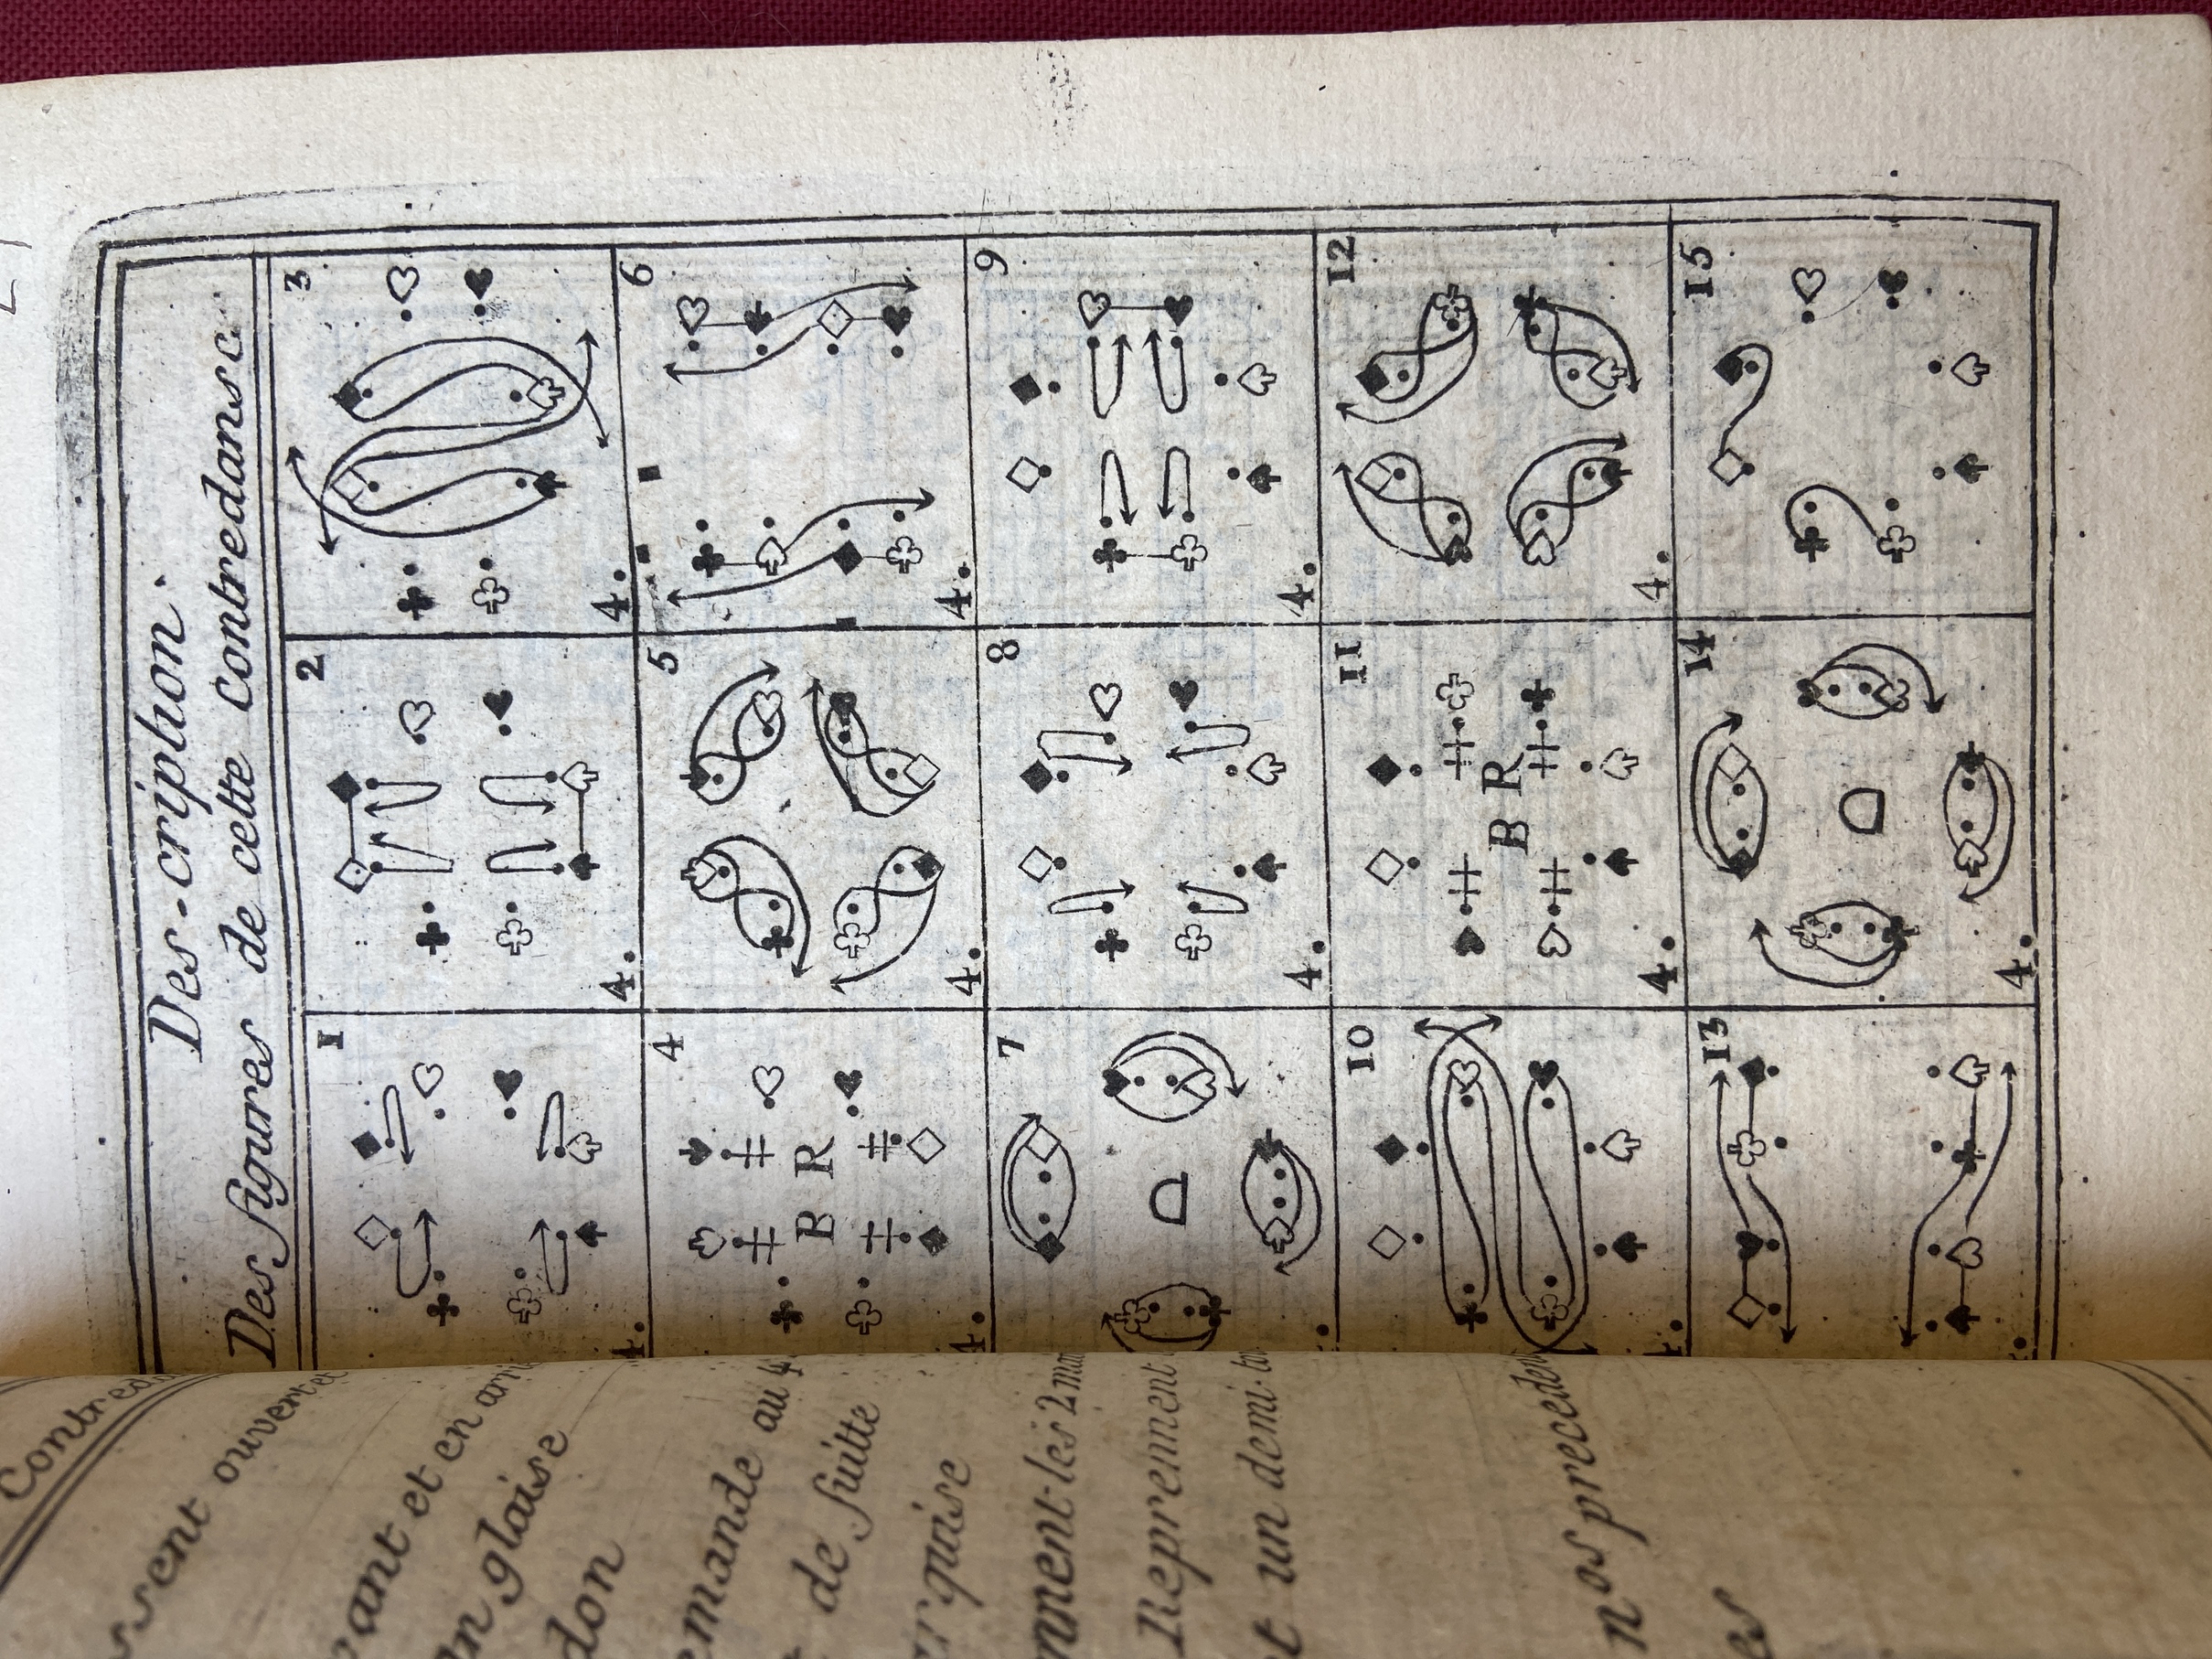 Des-cription.
Des figures de cette contredansc.
1 2 3
4. 4. 4.
4 5 6
B R
4. 4. 4.
7 8 9
4. 4.
10 11 12
B R
4. 4.
13 14 15
4.
Contred
ssent ouvert et
ant et en arri
n glaise
don
emande au 4
de suitte
rquise
nnent les 2 mai
Reprennent
t un demi-to
nos preceden
es